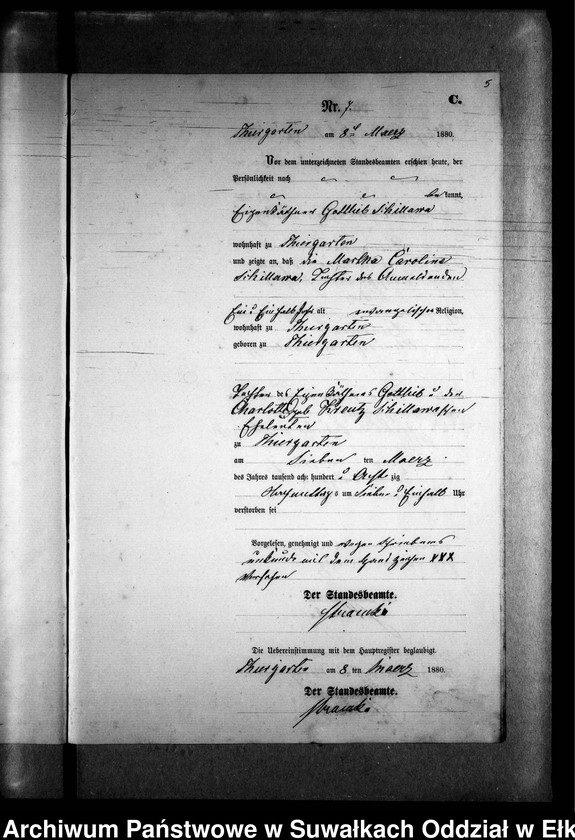 5
C.
Nr. 7.
Thiergarten am 8t Maerz 1880.
Vor dem unterzeichneten Standesbeamten erschien heute, der
Persönlichkeit nach
bekannt,
Eigenkäthner Gottlieb Schillawa
wohnhaft zu Thiergarten
und zeigte an, daß die Martha Caroline
Schillawa, Tochter des Anmeldenden
Ein u Einhalb Jahr alt evangelischer Religion,
wohnhaft zu Thiergarten
geboren zu Thiergarten
Tochter des Eigenkäthners Gottlieb u der
Charlotte geb Kreutz Schillawaschen
Eheleuten
zu Thiergarten
am Sieben ten Maerz
des Jahres tausend acht hundert u Acht zig
Nachmittags um Sieben u Einhalb Uhr
verstorben sei
Vorgelesen, genehmigt und wegen Schreibens
unkunde mit dem Handzeichen XXX
versehen
Der Standesbeamte.
Die Uebereinstimmung mit dem Hauptregister beglaubigt.
Thiergarten am 8 ten Maerz 1880.
Der Standesbeamte.
Archiwum Państwowe w Suwałkach Oddział w Ełk